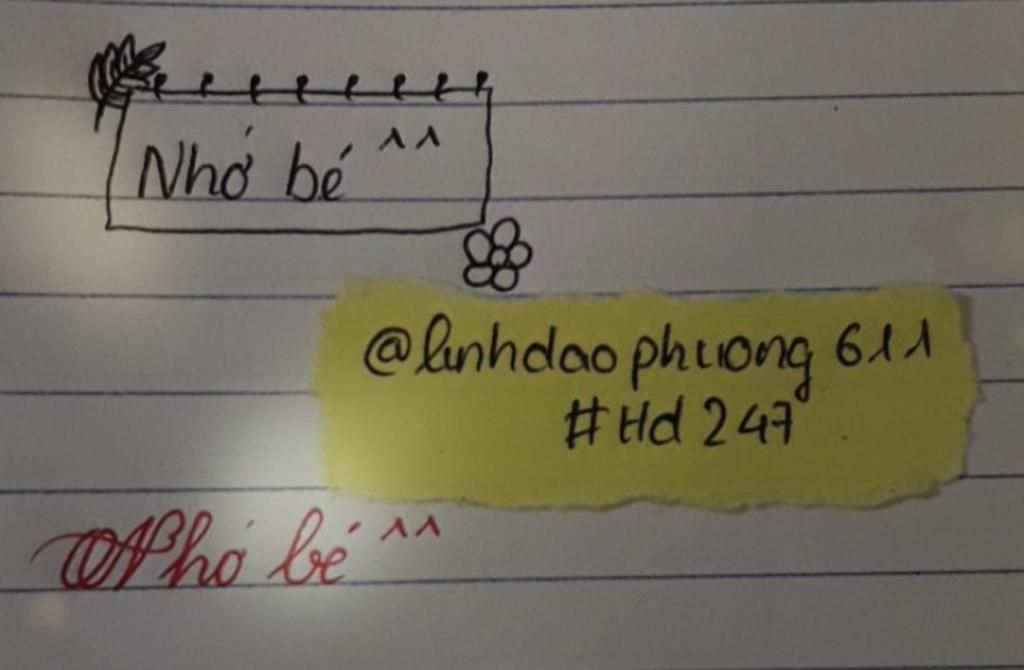 Nhớ bé ^^
@linhdaophuong 611
#Hd 247
Nhớ bé ^^